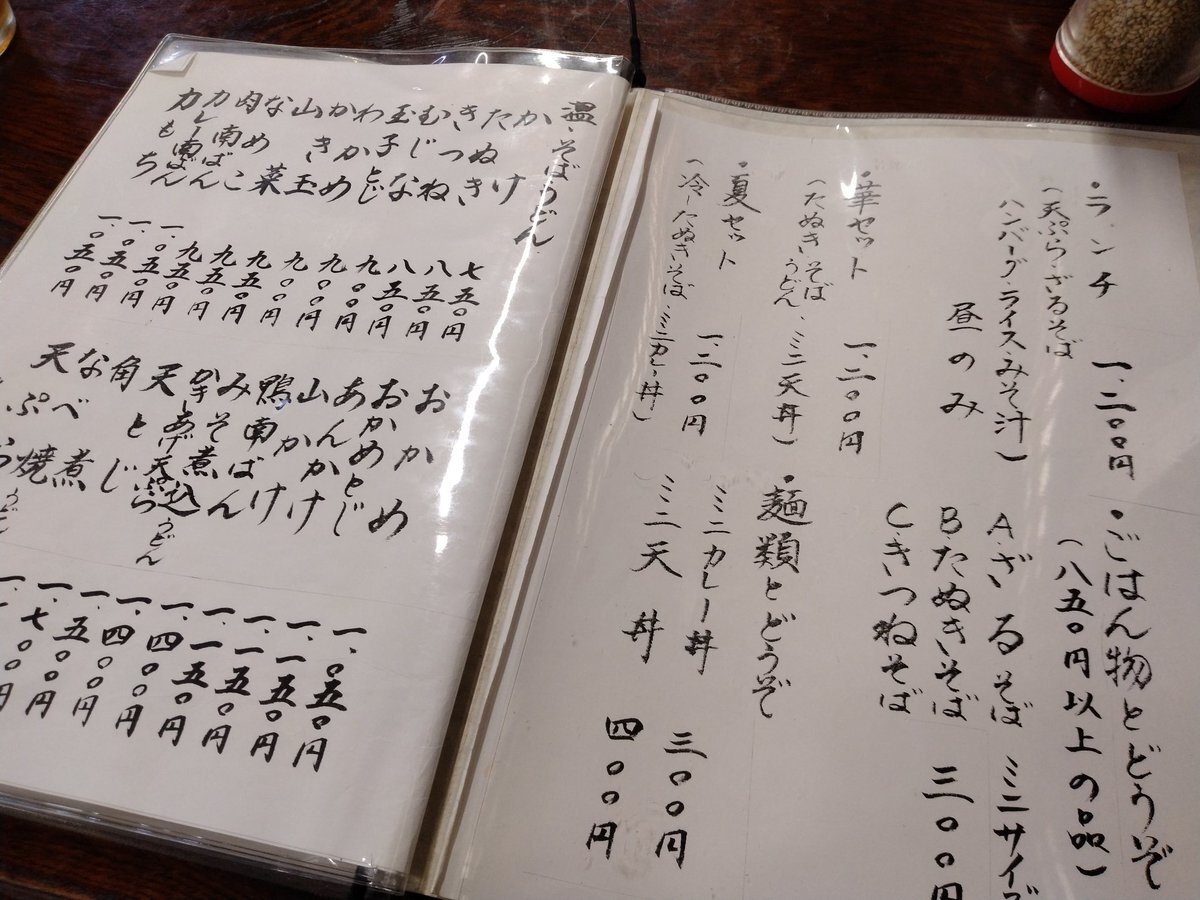 ・ランチ 一、二〇〇円
(天ぷら・ざるそば
ハンバーグ・ライス・みそ汁)
昼のみ
・華セット 一、二〇〇円
(たぬきそば・うどん、ミニ天丼)
・夏セット 一、二〇〇円
(冷したぬきそば・ミニカレー丼)
・ごはん物とどうぞ
(八五〇円以上の品)
Aざるそば ミニサイズ
B・たぬきそば 三〇〇円
C・きつねそば
・麺類とどうぞ
ミニカレー丼 三〇〇円
ミニ天丼 四〇〇円
温・そばうどん
かけ 七五〇円
たぬき 八五〇円
きつね 八五〇円
むじな 九〇〇円
玉子とじ 九〇〇円
わかめ 九〇〇円
かき玉 九五〇円
山菜 九五〇円
なめこ 九五〇円
肉南ばん 一、〇五〇円
カレー南ばん 一、〇五〇円
力もち 一、〇五〇円
おかめ 一、〇五〇円
おかめとじ 一、一五〇円
あんかけ 一、一五〇円
山かけ 一、一五〇円
鴨南ばん 一、四〇〇円
みそ煮込うどん 一、四〇〇円
かきあげ天ぷら 一、五〇〇円
天とじ 一、七〇〇円
角煮
なべ焼うどん
天ぷら